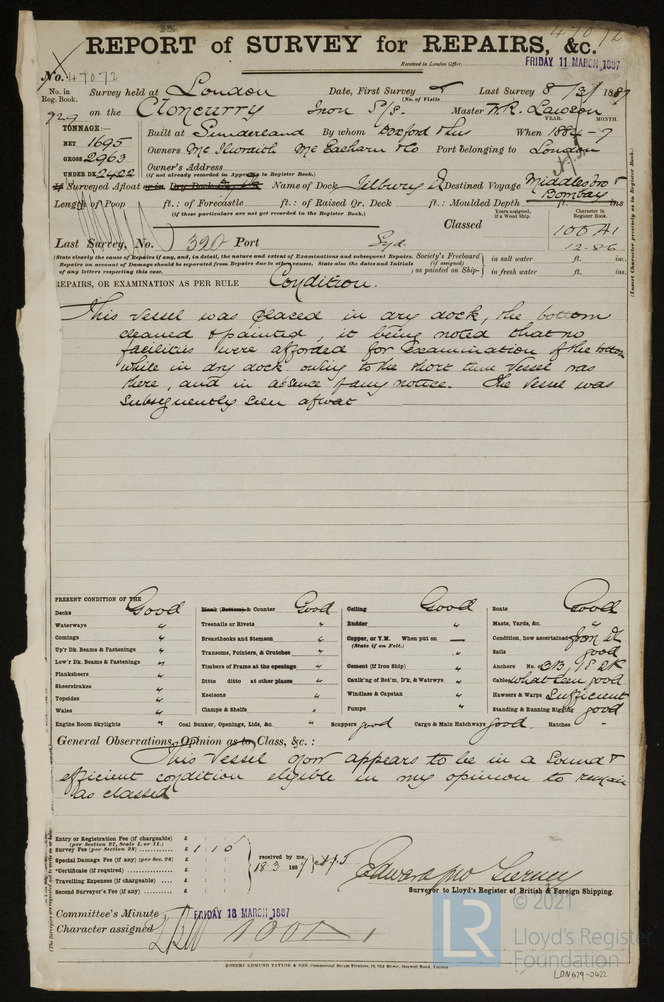 47072
REPORT of SURVEY for REPAIRS, &c.
Received in London Office, FRIDAY 11 MARCH 1887
No. 47072
No. in Reg. Book. Survey held at London Date, First Survey Last Survey 8/3/1887
(No. of Visits
929 on the Cloncurry Iron S/S. Master W.R. Lawson
TONNAGE:— YEAR. MONTH.
NET 1695 Built at Sunderland By whom Oxford & Hus When 1884-7
GROSS 2963 Owners McIlwraith McEacharn & Co Port belonging to London
UNDER DK 2422 Owner's Address
(If not already recorded in Appendix to Register Book.)
If Surveyed Afloat or in Dry Dock Name of Dock Tilbury D Destined Voyage Middlesbro & Bombay
Length of Poop ft.: of Forecastle ft.: of Raised Qr. Deck ft.: Moulded Depth ft. ins
(If these particulars are not yet recorded in the Register Book.)
Years assigned, if a Wood Ship. Character in Register Book.
Classed 100 A1
12.86
Last Survey, No. 320 Port Syd.
(State clearly the cause of Repairs if any, and, in detail, the nature and extent of Examinations and subsequent Repairs.
Repairs on account of Damage should be separated from Repairs due to other causes. State also the dates and Initials
of any letters respecting this case.
Society's Freeboard (if assigned) as painted on Ship- in salt water ft. in.
in fresh water ft. in.
(Insert Character precisely as in Register Book.)
REPAIRS, OR EXAMINATION AS PER RULE Condition.
This vessel was placed in dry dock, the bottom
cleaned & painted, it being noted that no
facilities were afforded for Examination of the bottom
while in dry dock owing to the short time Vessel was
there, and in absence of any notice. The Vessel was
subsequently seen afloat
PRESENT CONDITION OF THE
Decks Good
Waterways "
Comings "
Up'r Dk. Beams & Fastenings "
Low'r Dk. Beams & Fastenings "
Planksheers "
Sheerstrakes "
Topsides "
Wales "
Engine Room Skylights "
Blank (Bottom) & Counter Good
Treenails or Rivets "
Breasthooks and Stemson "
Transoms, Pointers, & Crutches "
Timbers of Frame at the openings "
Ditto ditto at other places "
Keelsons "
Clamps & Shelfs "
Coal Bunker, Openings, Lids, &c. "
Ceiling Good
Rudder "
Copper, or Y.M. When put on —
(State if on Felt.)
Cement (if Iron Ship) "
Caulk'ng of Bot'm, D'k, & Watrwys "
Windlass & Capstan "
Pumps "
Scuppers good Cargo & Main Hatchways good.
Boats Good
Masts, Yards, &c. "
Condition, how ascertained from Dk
Sails good
Anchors No. 3B, 1S 2K
Cables what seen good
Hawsers & Warps Sufficient
Standing & Running Rigging good
Hatches "
General Observations, Opinion as to Class, &c. :
This Vessel now appears to be in a Sound &
efficient condition eligible in my opinion to remain
as classed
Entry or Registration Fee (if chargeable) £
(per Section 27, Scale I. or II.)
Survey Fee (per Section 28) £ 1 . 10
Special Damage Fee (if any) (per Sec. 28) £
*Certificate (if required) £
Travelling Expenses (if chargeable) £
Second Surveyor's Fee (if any) £
received by me,
18.3 1887
Surveyor to Lloyd's Register of British & Foreign Shipping.
Committee's Minute FRIDAY 18 MARCH 1887
Character assigned 100 A 1
ROBERT EDMUND TAYLOR & SON, Commercial Steam Printers, 19, Old Street, Goswell Road, London
© 2021
LR Lloyd's Register
Foundation
LDN679-0422